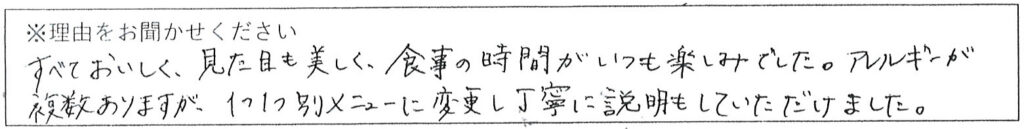 ※理由をお聞かせください
すべておいしく、見た目も美しく、食事の時間がいつも楽しみでした。アレルギーが
複数ありますが、1つ1つ別メニューに変更し丁寧に説明もしていただけました。